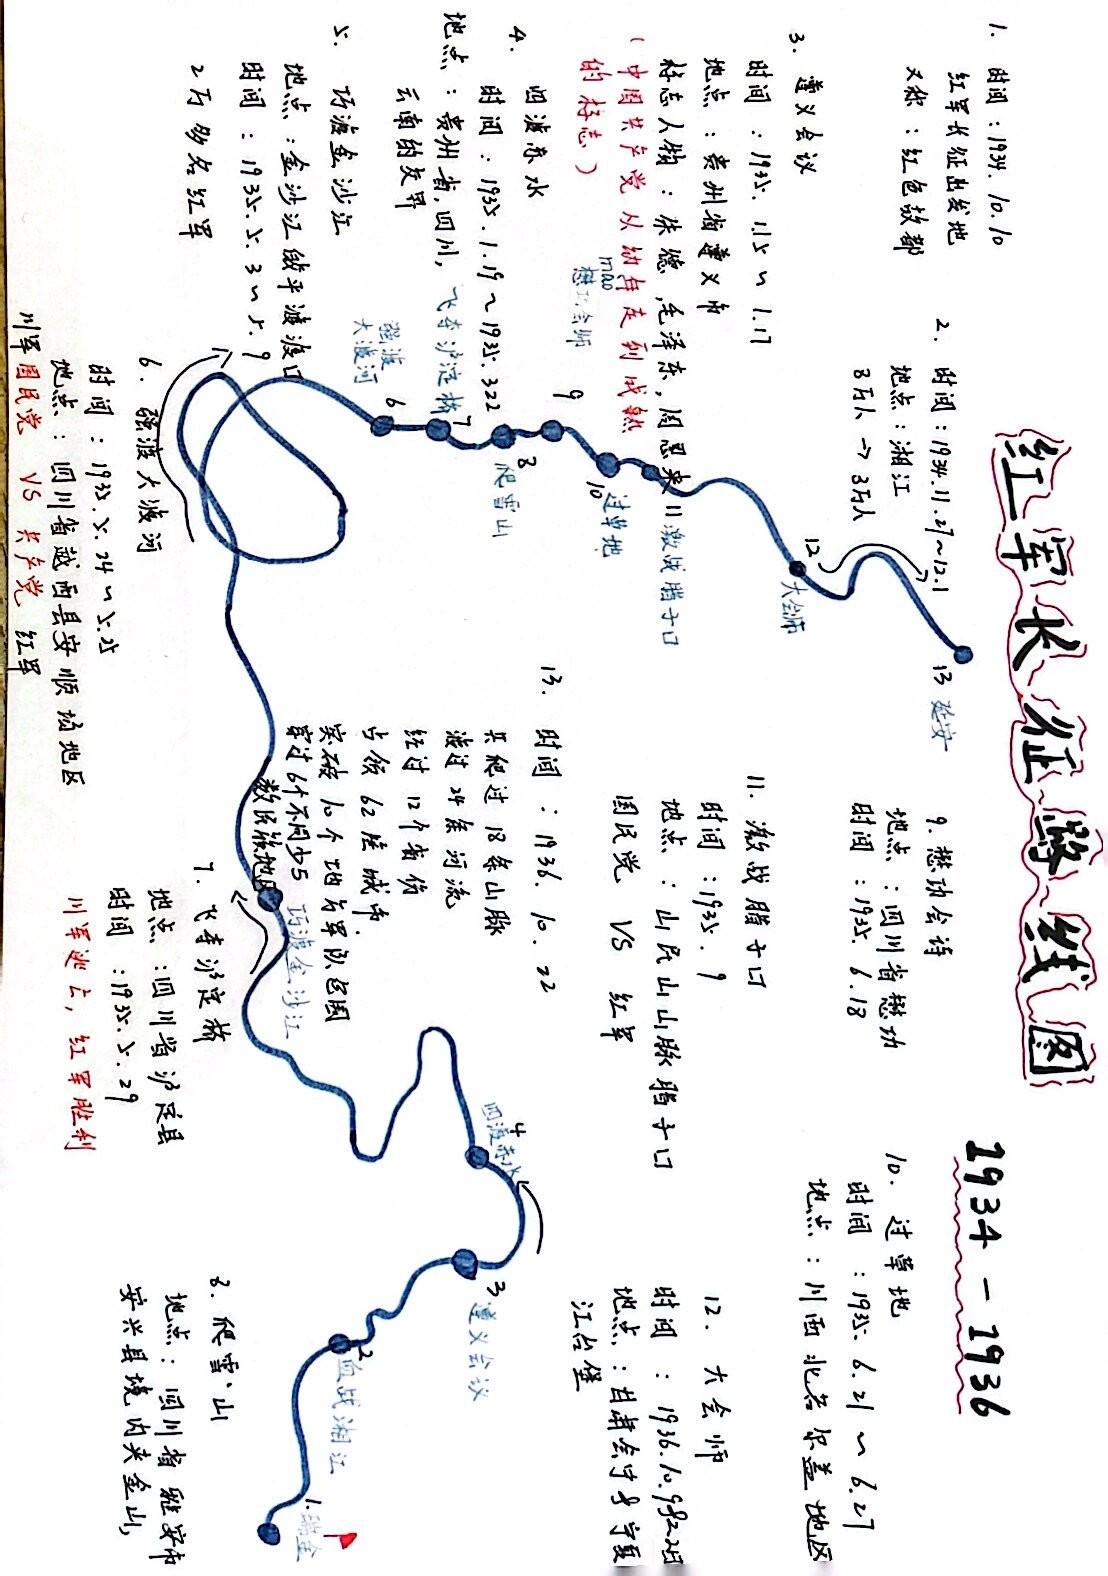 红军长征路线图
1934-1936
1. 时间:1934.10.10
红军长征出发地
又称:红色故都
2. 时间:1934.11.27~12.1
地点:湘江
8万人→3万人
3. 遵义会议
时间:1935.1.15~1.17
地点:贵州省遵义市
标志人物:朱德,毛泽东,周恩来
(中国共产党从幼年走到成熟
的标志)
mao
4. 四渡赤水
时间:1935.1.19~1935.3.22
地点:贵州省,四川,
云南的交界
5. 巧渡金沙江
地点:金沙江皎平渡渡口
时间:1935.5.3~5.9
2万多名红军
6. 强渡大渡河
时间:1935.5.24~5.25
地点:四川省越西县安顺场地区
川军国民党 VS 共产党 红军
7. 飞夺泸定桥
地点:四川省泸定县
时间:1935.5.29
川军逃亡,红军胜利
8. 爬雪山
地点:四川省雅安市
安兴县境内夹金山,
9. 懋功会诗
地点:四川省懋功
时间:1935.6.18
10. 过草地
时间:1935.6.21~6.27
地点:川西北若尔盖地区
11. 激战腊子口
时间:1935.9
地点:山民山山脉腊子口
国民党 VS 红军
12. 大会师
时间:1936.10.9&22日
地点:甘肃会宁&宁夏
江台堡
13. 时间:1936.10.22
共爬过18条山脉
渡过24条河流
经过12个省份
占领62座城市,
突破10个地方军队包围
穿过6个不同少5
数民族地区
1.瑞金
2
血战湘江
3
遵义会议
4
四渡赤水
巧渡金沙江
6
强渡
大渡河
7
飞夺泸定桥
8
爬雪山
9
懋功会师
10
过草地
11激战腊子口
12
大会师
13 延安